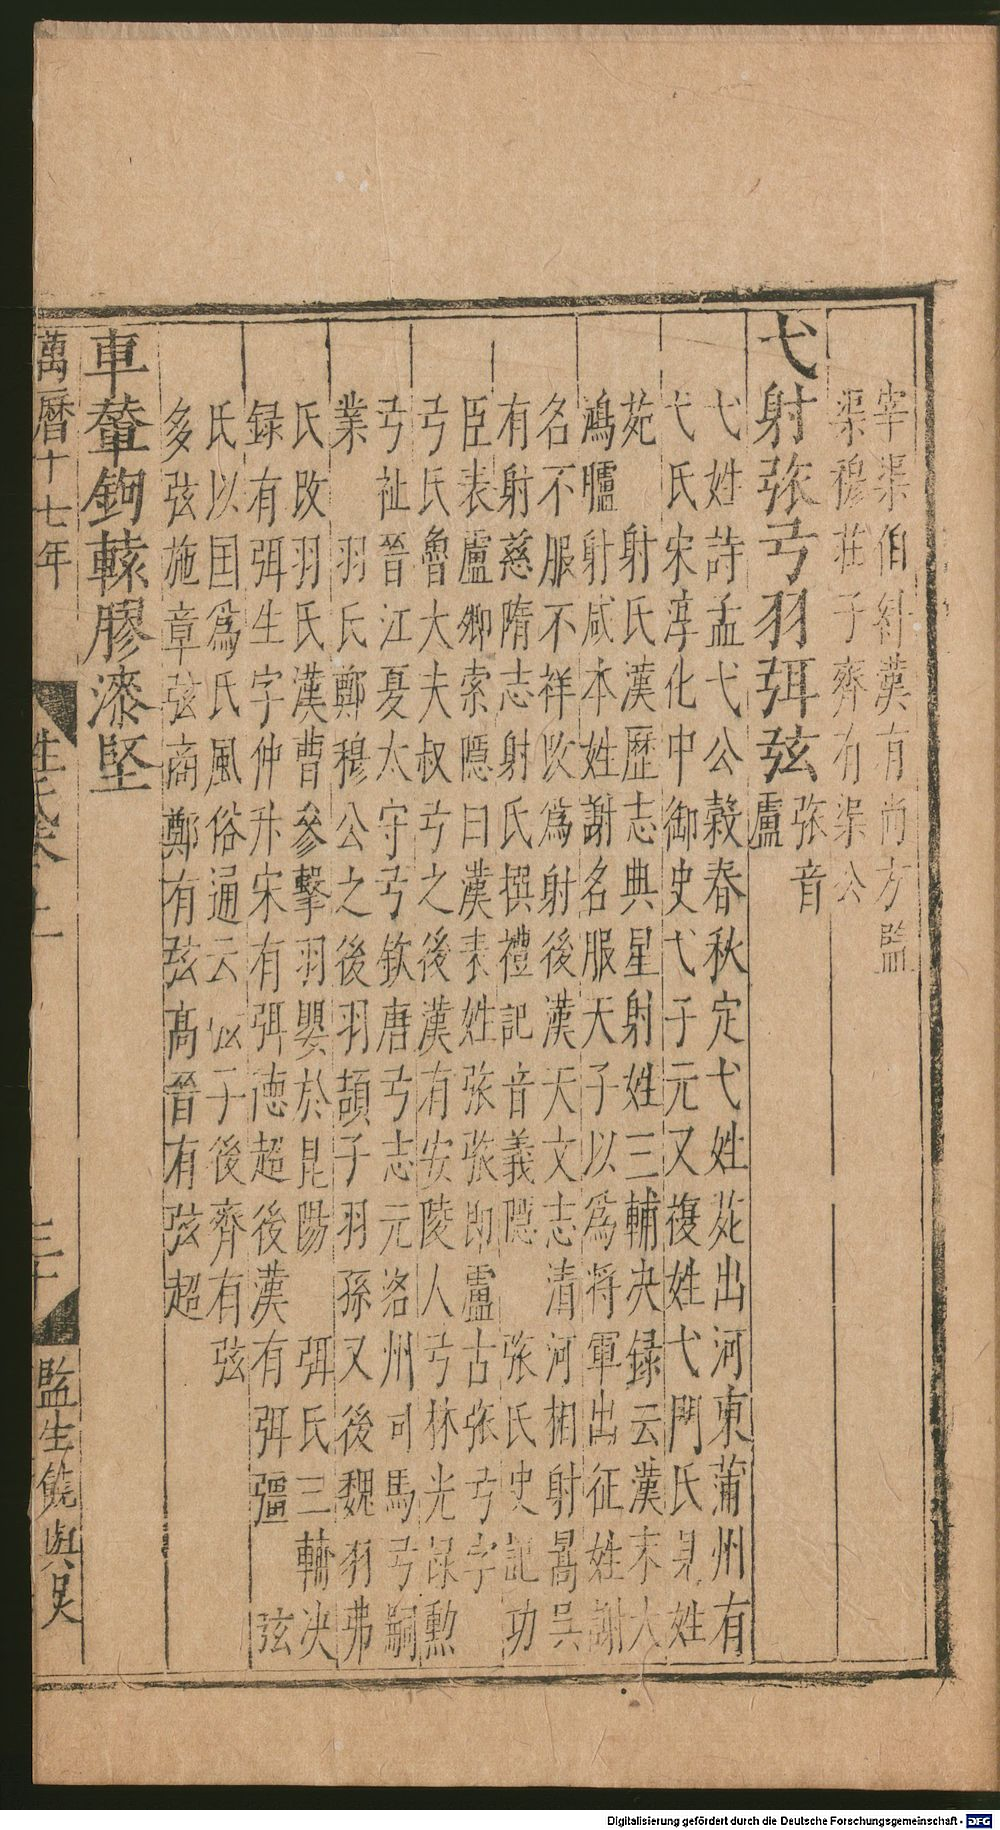 宰渠伯糾漢有尚方監
渠穆莊子齊有渠公
弋射張弓羽弭弦
張音
盧
弋姓詩孟弋公穀春秋定弋姓苑出河東蒲州有
弋氏宋淳化中御史弋子元又複姓弋門氏見姓
苑　射氏漢歷志典星射姓三輔决録云漢末大
鴻臚射咸本姓謝名服天子以爲将軍出征姓謝
名不服不祥改爲射後漢天文志清河相射暠吳
有射慈隋志射氏撰禮記音義隱　張氏史記功
臣表盧卿索隱曰漢表姓張張即盧古張弓字
弓氏魯大夫叔弓之後漢有安陵人弓林光祿勲
弓祉晉江夏太守弓欽唐弓志元洛州司馬弓嗣
業　羽氏鄭穆公之後羽頡子羽孫又後魏羽弗
氏改羽氏漢曹參擊羽嬰於昆陽　弭氏三輔决
録有弭生字仲升宋有弭德超後漢有弭彊　弦
氏以国爲氏風俗通云弦子後齊有弦
多弦施章弦商鄭有弦高晉有弦超
車輦鉤轅膠漆堅
萬曆十七年
姓氏
三十
監生饒與吴
Digitalisierung gefördert durch die Deutsche Forschungsgemeinschaft - DFG